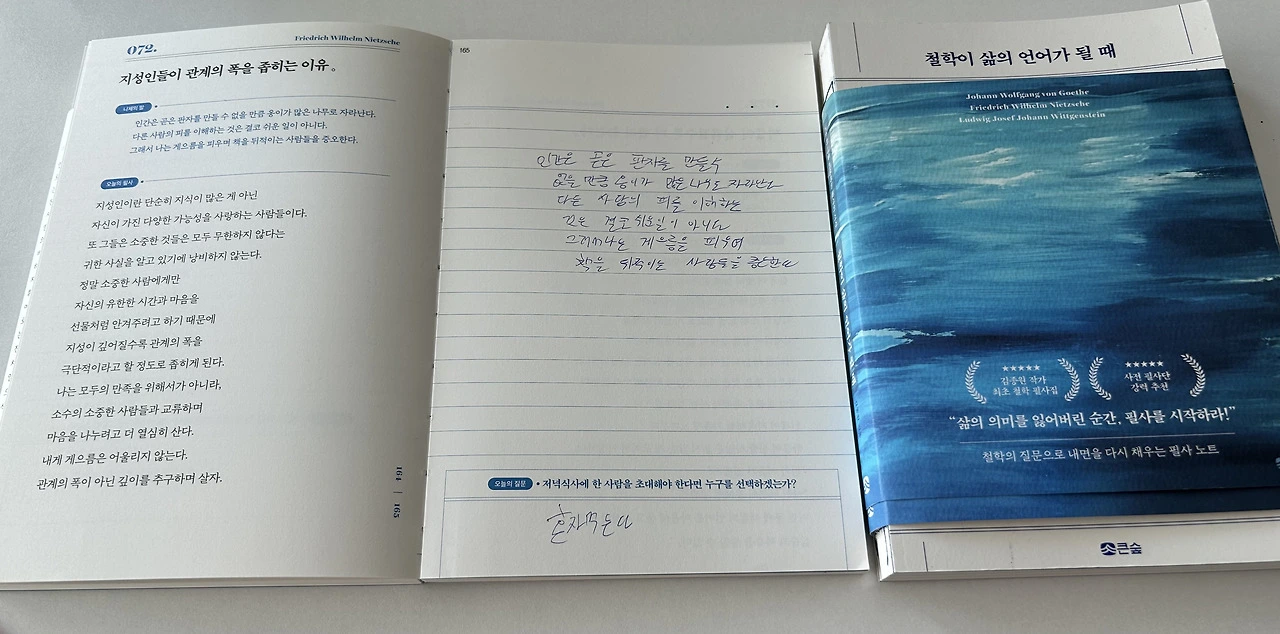 072.
Friedrich Wilhelm Nietzsche
지성인들이 관계의 폭을 좁히는 이유。
니체의 말
인간은 곧은 판자를 만들 수 없을 만큼 옹이가 많은 나무로 자라난다.
다른 사람의 피를 이해하는 것은 결코 쉬운 일이 아니다.
그래서 나는 게으름을 피우며 책을 뒤적이는 사람들을 증오한다.
오늘의 필사
지성인이란 단순히 지식이 많은 게 아닌
자신이 가진 다양한 가능성을 사랑하는 사람들이다.
또 그들은 소중한 것들은 모두 무한하지 않다는
귀한 사실을 알고 있기에 낭비하지 않는다.
정말 소중한 사람에게만
자신의 유한한 시간과 마음을
선물처럼 안겨주려고 하기 때문에
지성이 깊어질수록 관계의 폭을
극단적이라고 할 정도로 좁히게 된다.
나는 모두의 만족을 위해서가 아니라,
소수의 소중한 사람들과 교류하며
마음을 나누려고 더 열심히 산다.
내게 게으름은 어울리지 않는다.
관계의 폭이 아닌 깊이를 추구하며 살자.
164 | 165
165
인간은 곧은 판자를 만들수
없을 만큼 옹이가 많은 나무로 자라난다
다른 사람의 피를 이해하는
것은 결코 쉬운일이 아니다
그래서 나는 게으름을 피우며
책을 뒤적이는 사람들을 증오한다
오늘의 질문
저녁식사에 한 사람을 초대해야 한다면 누구를 선택하겠는가?
혼자먹는다
철학이 삶의 언어가 될 때
Johann Wolfgang von Goethe
Friedrich Wilhelm Nietzsche
Ludwig Josef Johann Wittgenstein
김종원 작가
최초 철학 필사집
사전 필사단
강력 추천
“삶의 의미를 잃어버린 순간, 필사를 시작하라!”
철학의 질문으로 내면을 다시 채우는 필사 노트
큰숲